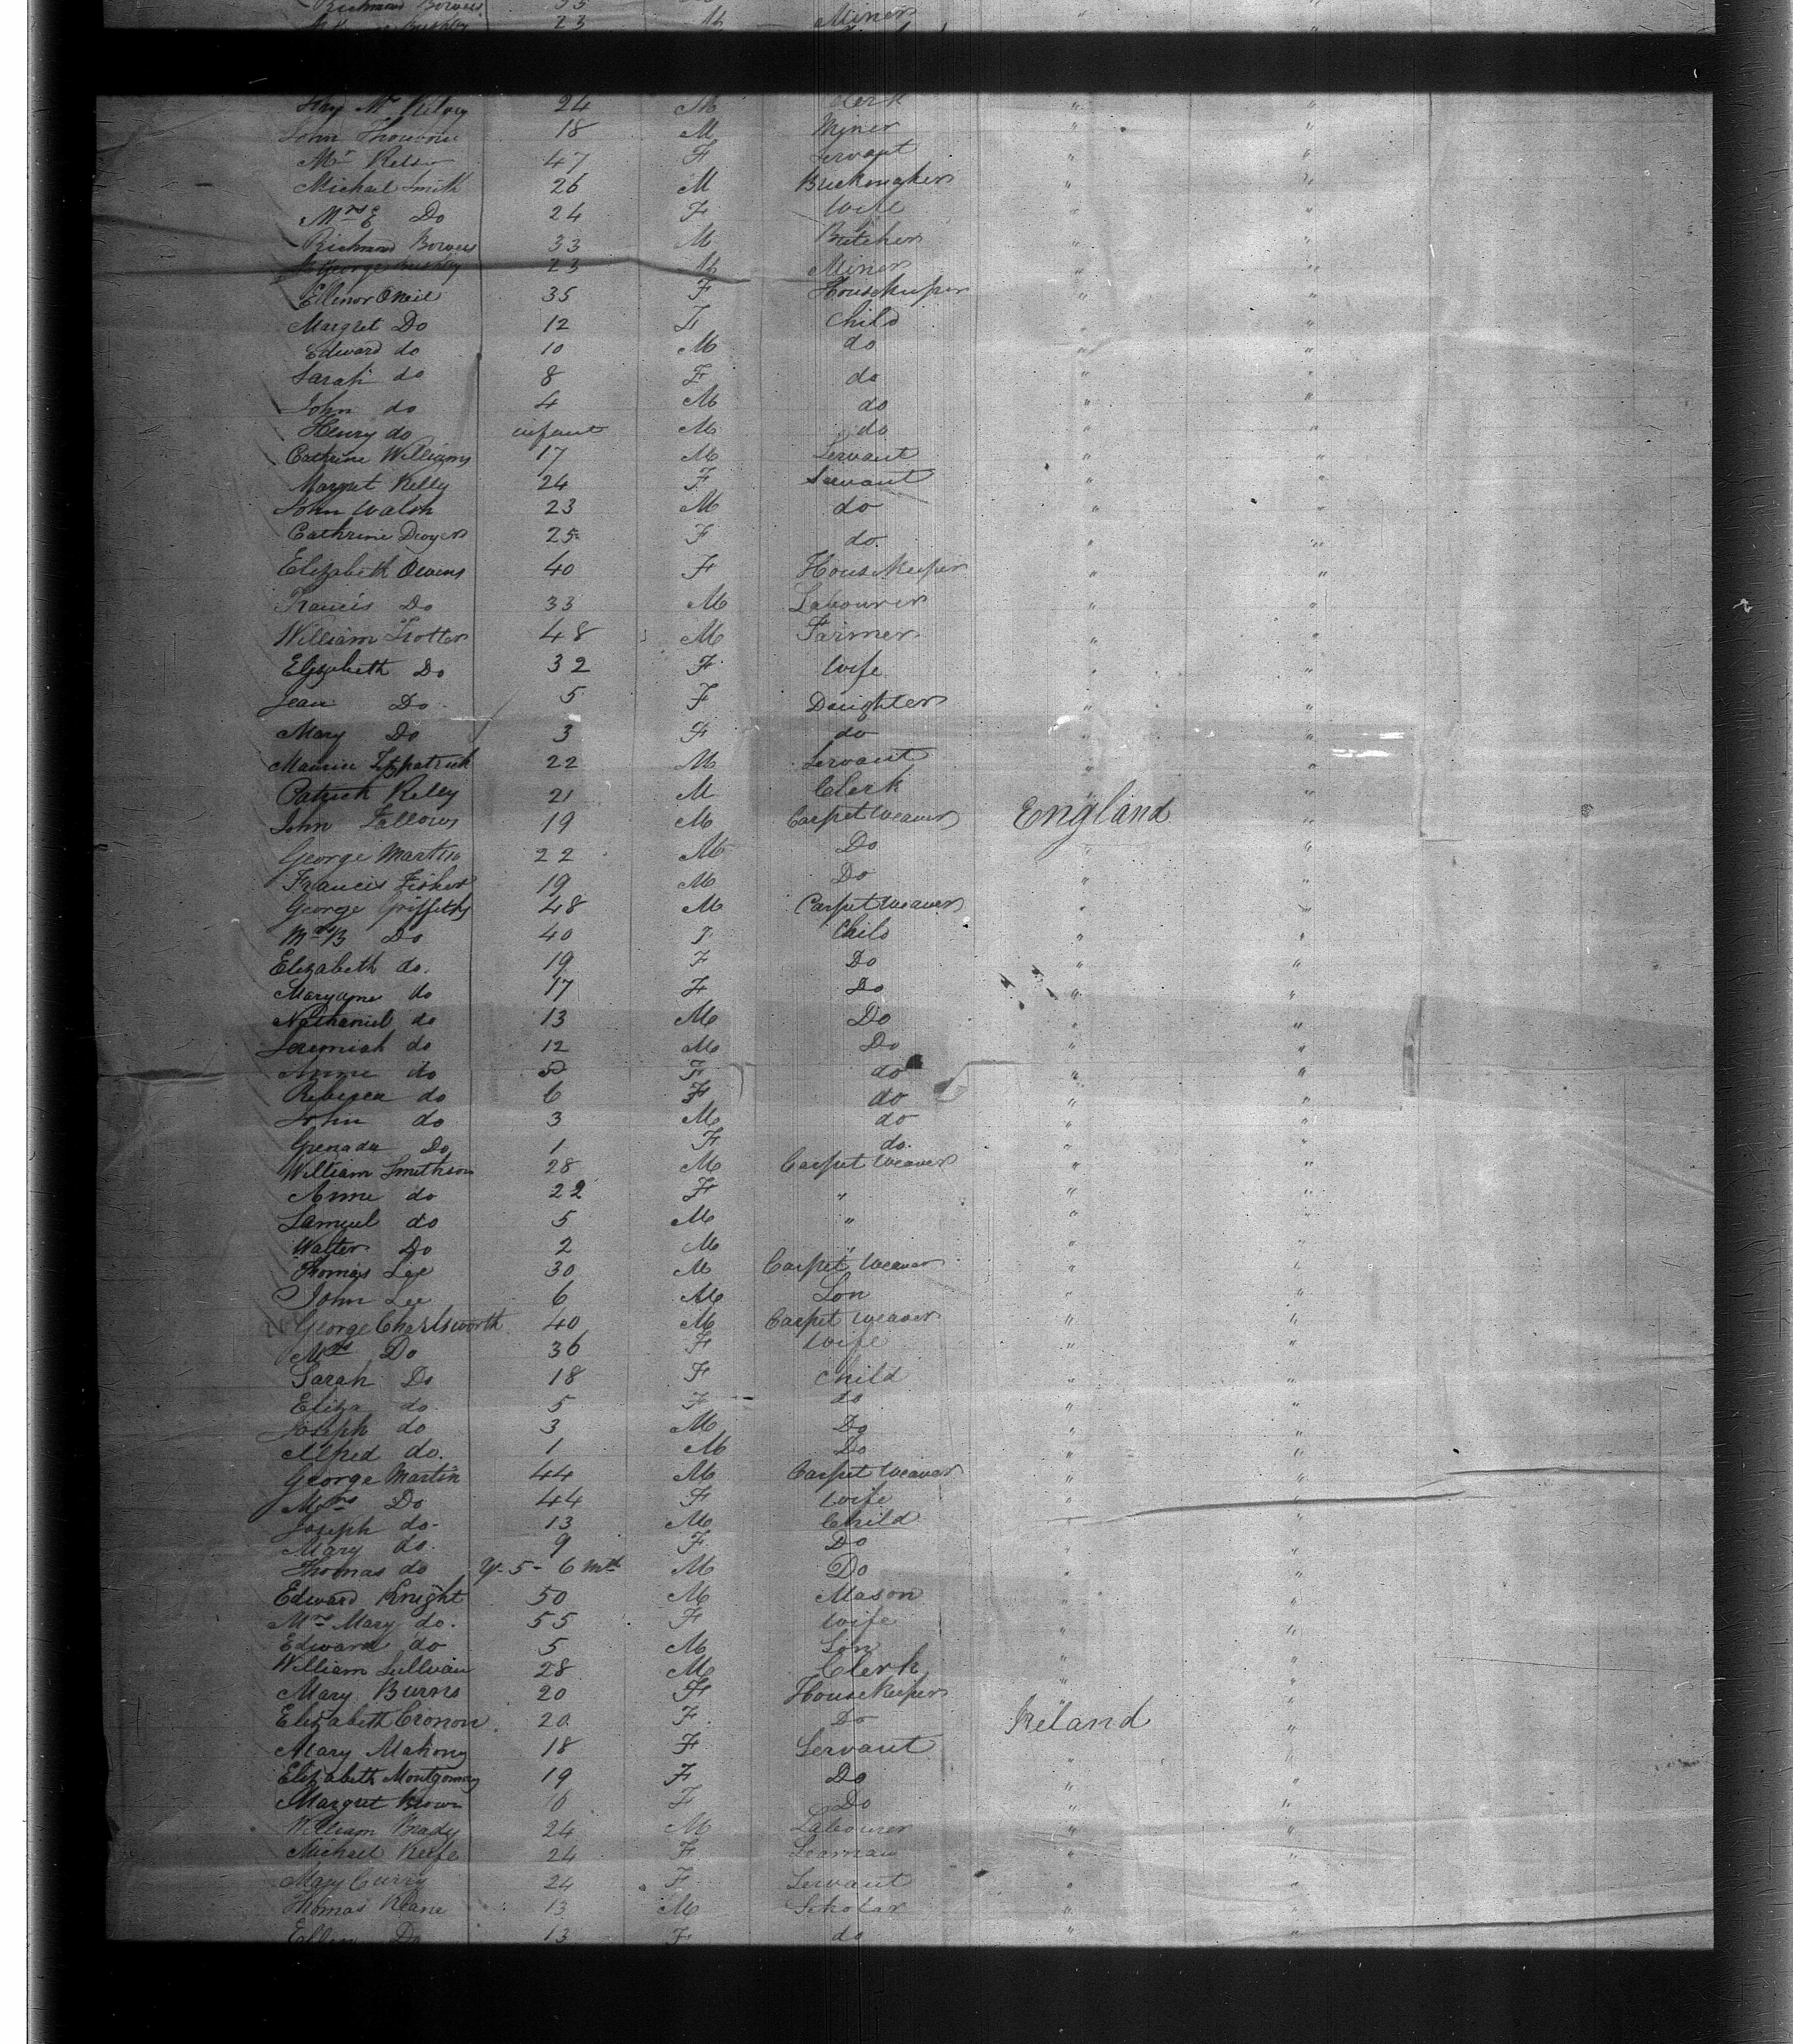 Richmond Bowers 33
23 M Miner
24 M Clerk
John 18 M Miner
47 F Servant
Michael Smith 26 M Brickmaker
Mrs E Do 24 F Wife
Richmond Bowers 33 M Butcher
George 23 M Miner
Ellinor ONeil 35 F Housekeeper
Margret Do 12 F Child
Edward do 10 M do
Sarah do 8 F do
John do 4 M do
Henry do infant M do
Cathrine Williams 17 M Servant
Margret Kelly 24 F Servant
John Walsh 23 M do
Cathrine Dwyer 25 F do
Elizabeth Owens 40 F Housekeeper
Francis Do 33 M Labourer
William Trotter 48 M Farmer
Elizabeth Do 32 F Wife
Jean Do 5 F Daughter
Mary Do 3 F do
Fitzpatrick 22 M Servant
Patrick Kelly 21 M Clerk
John Fallows 19 M Carpet Weaver England
George Martin 22 M Do
Francis Fisher 19 M Do
George Griffeths 48 M Carpet Weaver
Mrs B Do 40 F Child
Elizabeth do. 19 F Do
Maryanne do 17 F Do
Nathaniel do 13 M Do
Jeremiah do 12 M Do
Anne do F do
Rebecca do 6 F do
John do 3 M do
Grenada Do 1 F do.
William Smithson 28 M Carpet Weaver
Anne do 22 F "
Samuel do 5 M "
Walter Do 2 M "
Thomas Lee 30 M Carpet Weaver
John Lee 6 M Son
George Charlsworth 40 M Carpet Weaver
Mrs Do 36 F Wife
Sarah Do 18 F Child
Eliza do 5 F do
Joseph do 3 M Do
Alfred do. 1 M Do
George Martin 44 M Carpet Weaver
Mrs Do 44 F Wife
Joseph do- 13 M Child
Mary do. 9 F Do
Thomas do 5 - 6 mth M Do
Edward Knight 50 M Mason
Mrs Mary do. 55 F Wife
Edward do 5 M Son
William Sullivan 28 M Clerk
Mary Burns 20 F Housekeeper
Elizabeth Cronon 20 F Do Ireland
Mary Mahony 18 F Servant
Elizabeth Montgomery 19 F Do
Margret Brown F Do
William Brady 24 M Labourer
Michael Keefe 24 F Seaman
Mary Curry 24 F Servant
Thomas Keane 13 M Scholar
Ellen Do 13 F do